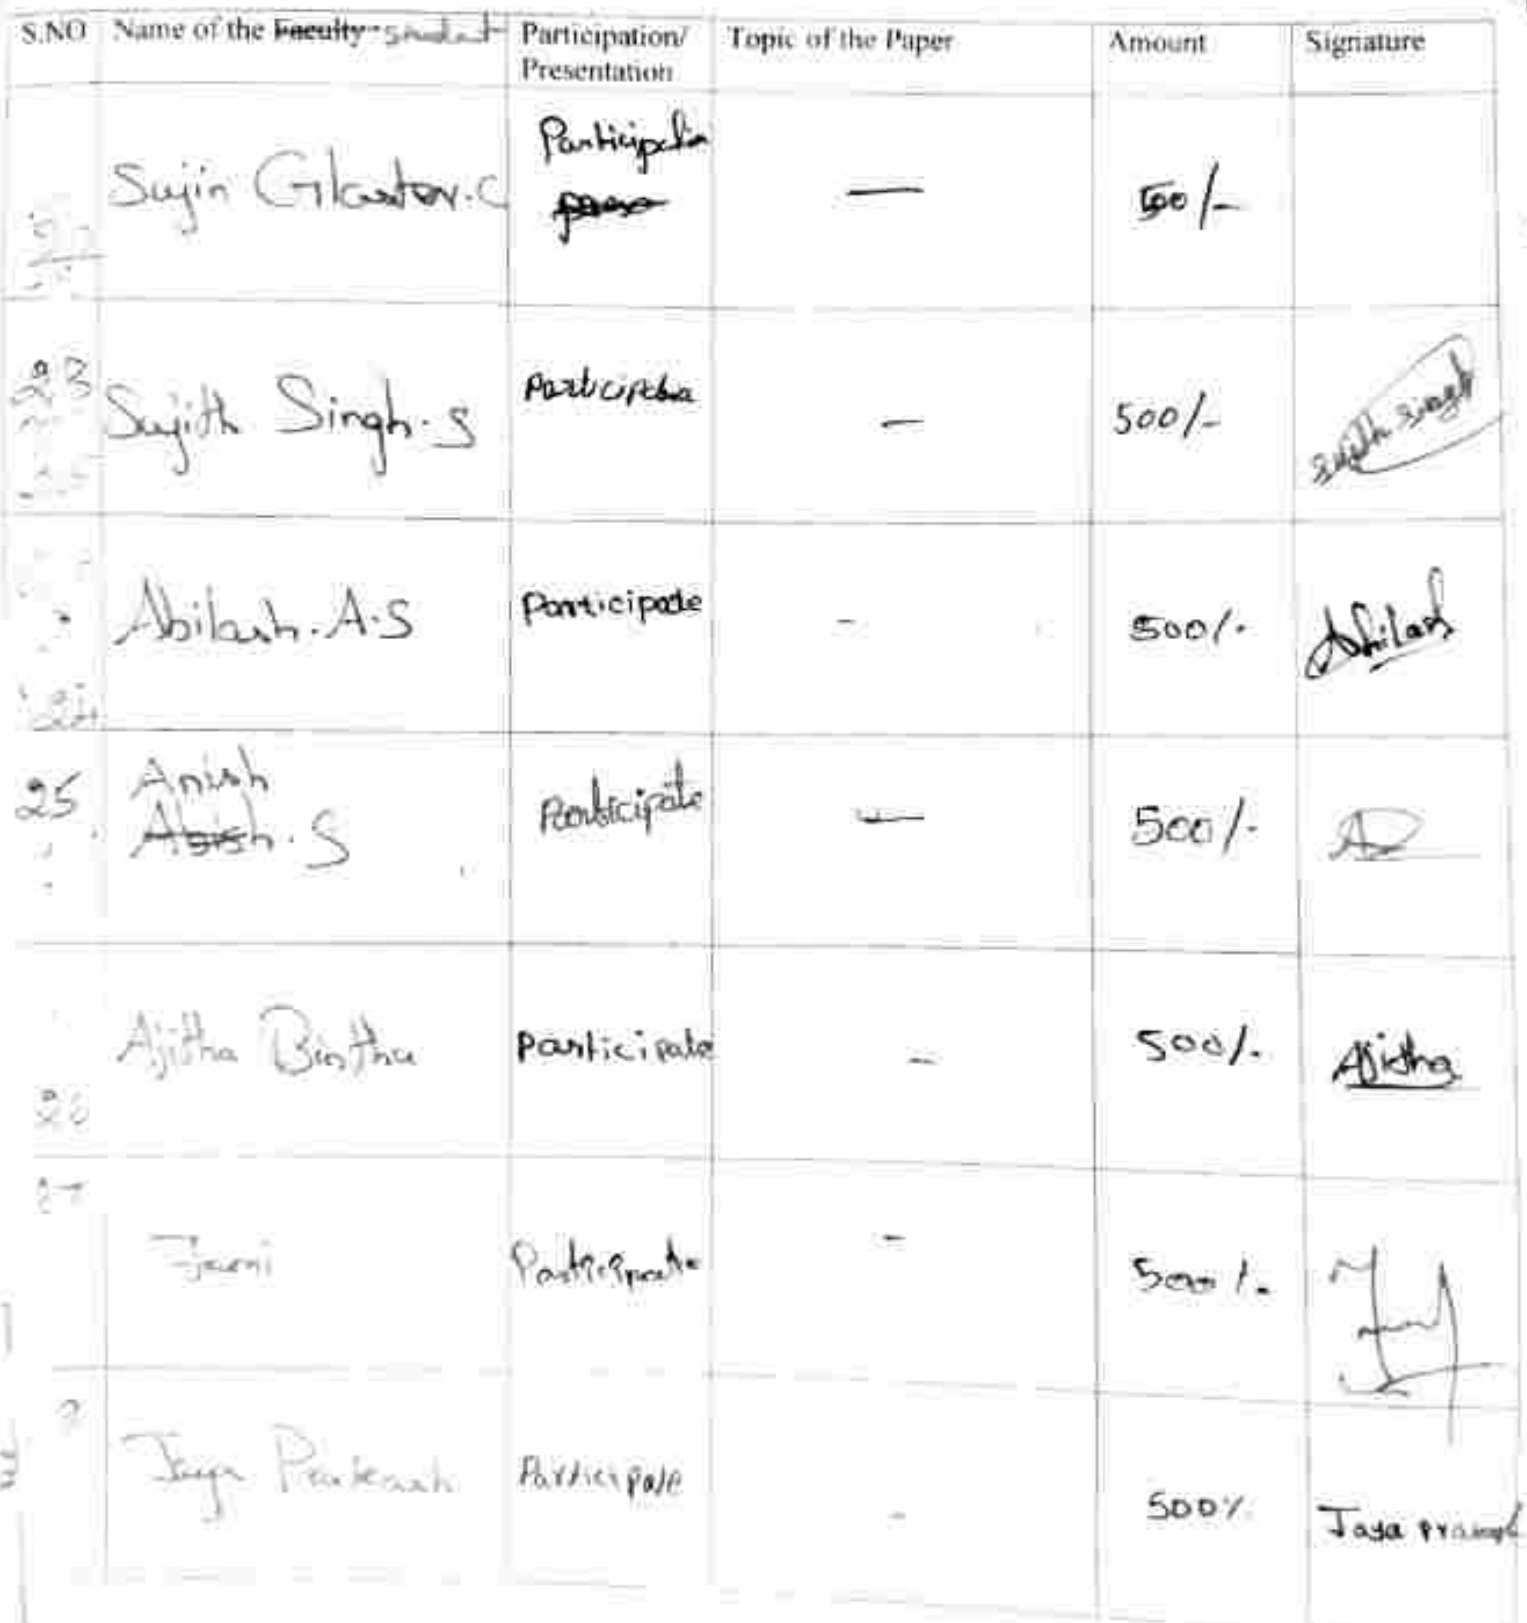 S.NO Name of the Faculty student Participation/ Topic of the Paper Amount Signature
Presentation
Sujin C Participation — 500/-
23 Sujith Singh. S Participation — 500/- Sujith Singh
Abilash. A.S Participate - 500/- Abilash
24
25 Anish Participate — 500/-
Abish. S
Ajitha Binthu Participate - 500/- Ajitha
26
27 Participate - 500/-
Jaya Prakash Participate - 500/- Jaya Prakash